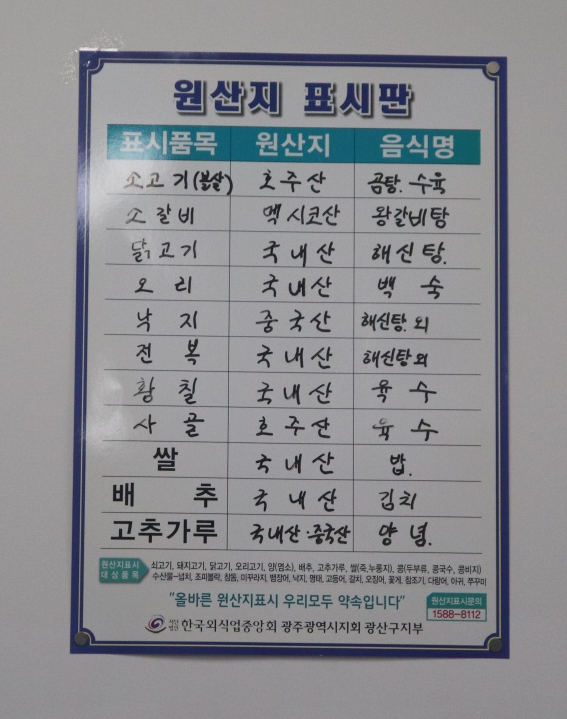 원산지 표시판
표시품목 원산지 음식명
소고기(볼살) 호주산 곰탕. 수육
소갈비 멕시코산 왕갈비탕
닭고기 국내산 해신탕.
오리 국내산 백숙
낙지 중국산 해신탕.외
전복 국내산 해신탕외
황칠 국내산 육수
사골 호주산 육수
쌀 국내산 밥.
배추 국내산 김치
고추가루 국내산·중국산 양념.
원산지표시 대상품목
쇠고기, 돼지고기, 닭고기, 오리고기, 양(염소), 배추, 고추가루, 쌀(죽,누룽지), 콩(두부류, 콩국수, 콩비지)
수산물-넙치, 조피볼락, 참돔, 미꾸라지, 뱀장어, 낙지, 명태, 고등어, 갈치, 오징어, 꽃게, 참조기, 다랑어, 아귀, 쭈꾸미
"올바른 원산지표시 우리모두 약속입니다"
원산지표시문의
1588-8112
사단법인 한국외식업중앙회 광주광역시지회 광산구지부